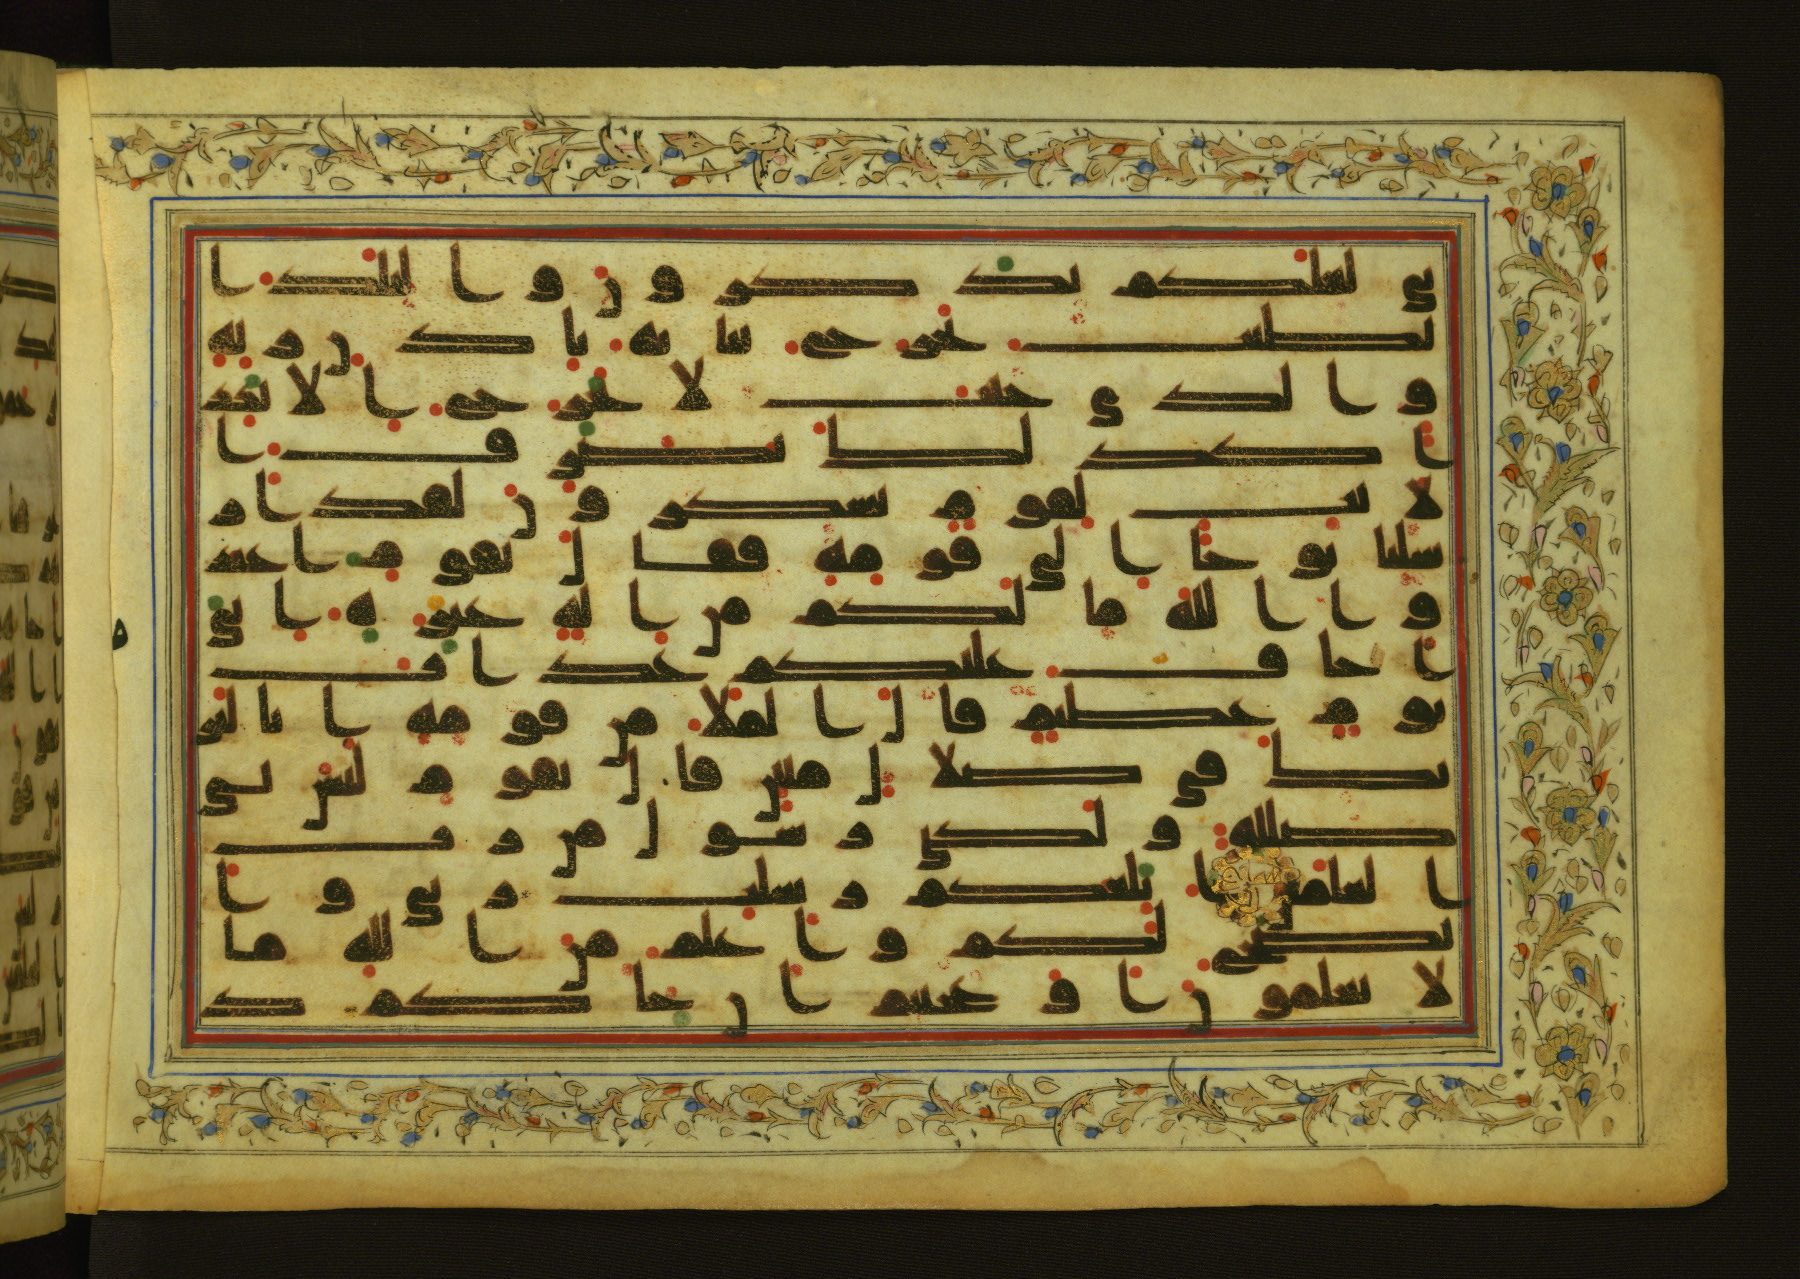 ى لعلكم تذكرون والبلد ا
لطيب يخرج نباته باذن ربه
والذى خبث لا يخرج الا نكد
ا كذلك نصرف ا
لايت لقوم يشكرون لقد ار
سلنا نوحا الى قومه فقال يقوم اعبد
وا الله ما لكم من اله غيره انى
اخاف عليكم عذاب
يوم عظيم قال الملا من قومه انا لنر
ىك فى ضلل مبين قال يقوم ليس بى
ضللة ولكنى رسول من رب
العلمين ابلغكم رسلت ربى وا
نصح لكم واعلم من الله ما
لا تعلمون اوعجبتم ان جاكم ذك